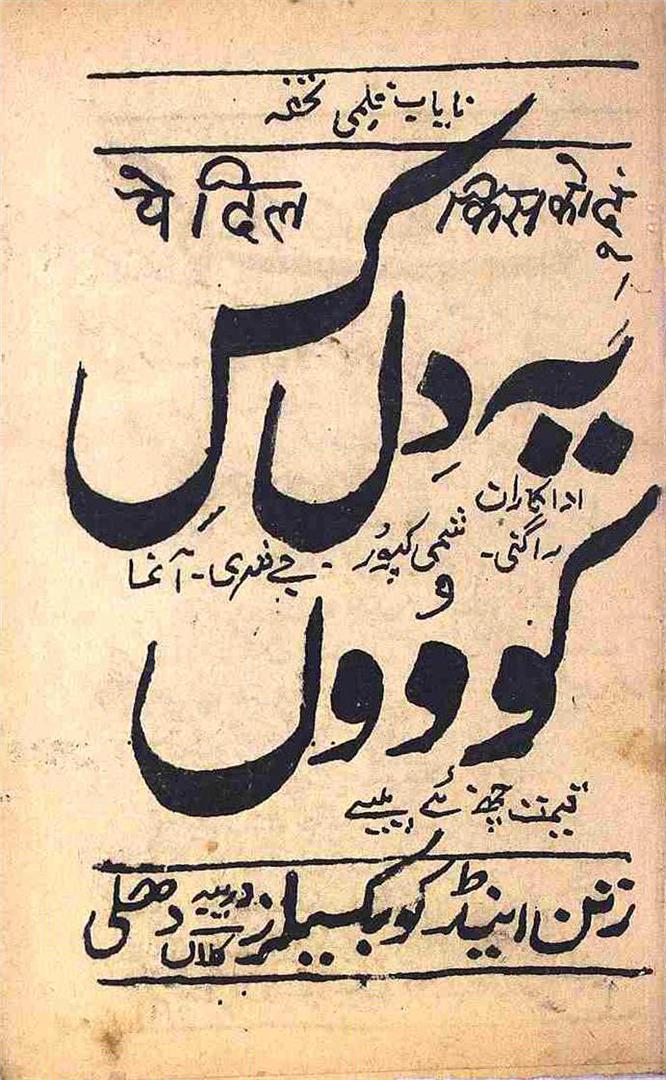 نایاب فلمی تحفہ
ये दिल किसको दूँ
یہ دِل کس
اداکاران
راگنی۔ شمی کپُور۔ جے شری۔ آغا
کو دوں
قیمت چھ نئے پیسے
رتن اینڈ کو بکسیلرز دریبہ کلاں دھلی